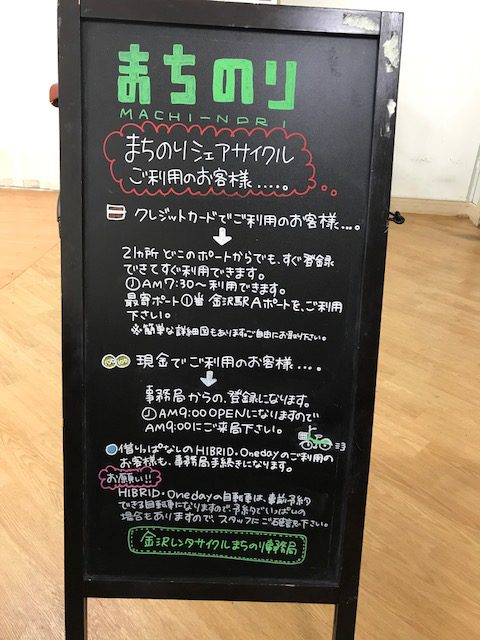 まちのり
MACHI-NORI
まちのりシェアサイクル
ご利用のお客様.....。
クレジットカードでご利用のお客様...。
↓
21ヵ所 どこのポートからでも、すぐ登録
できてすぐ利用できます。
AM7:30～利用できます。
最寄ポート①番 金沢駅Aポートを、ご利用
下さい。
※簡単な詳細図もあります。ご自由にお取り下さい。
現金でご利用のお客様....。
↓
事務局からの、登録になります。
AM9:00OPENになりますので
AM9:00にご来局下さい。
借りっぱなしのHIBRID・Onedayのご利用の
お客様も、事務局手続きになります。
お願い!!
HIBRID・Onedayの自転車は、事前予約
できる自転車になりますので、予約でいっぱいの
場合もありますので、スタッフにご確認下さい。
金沢レンタサイクルまちのり事務局